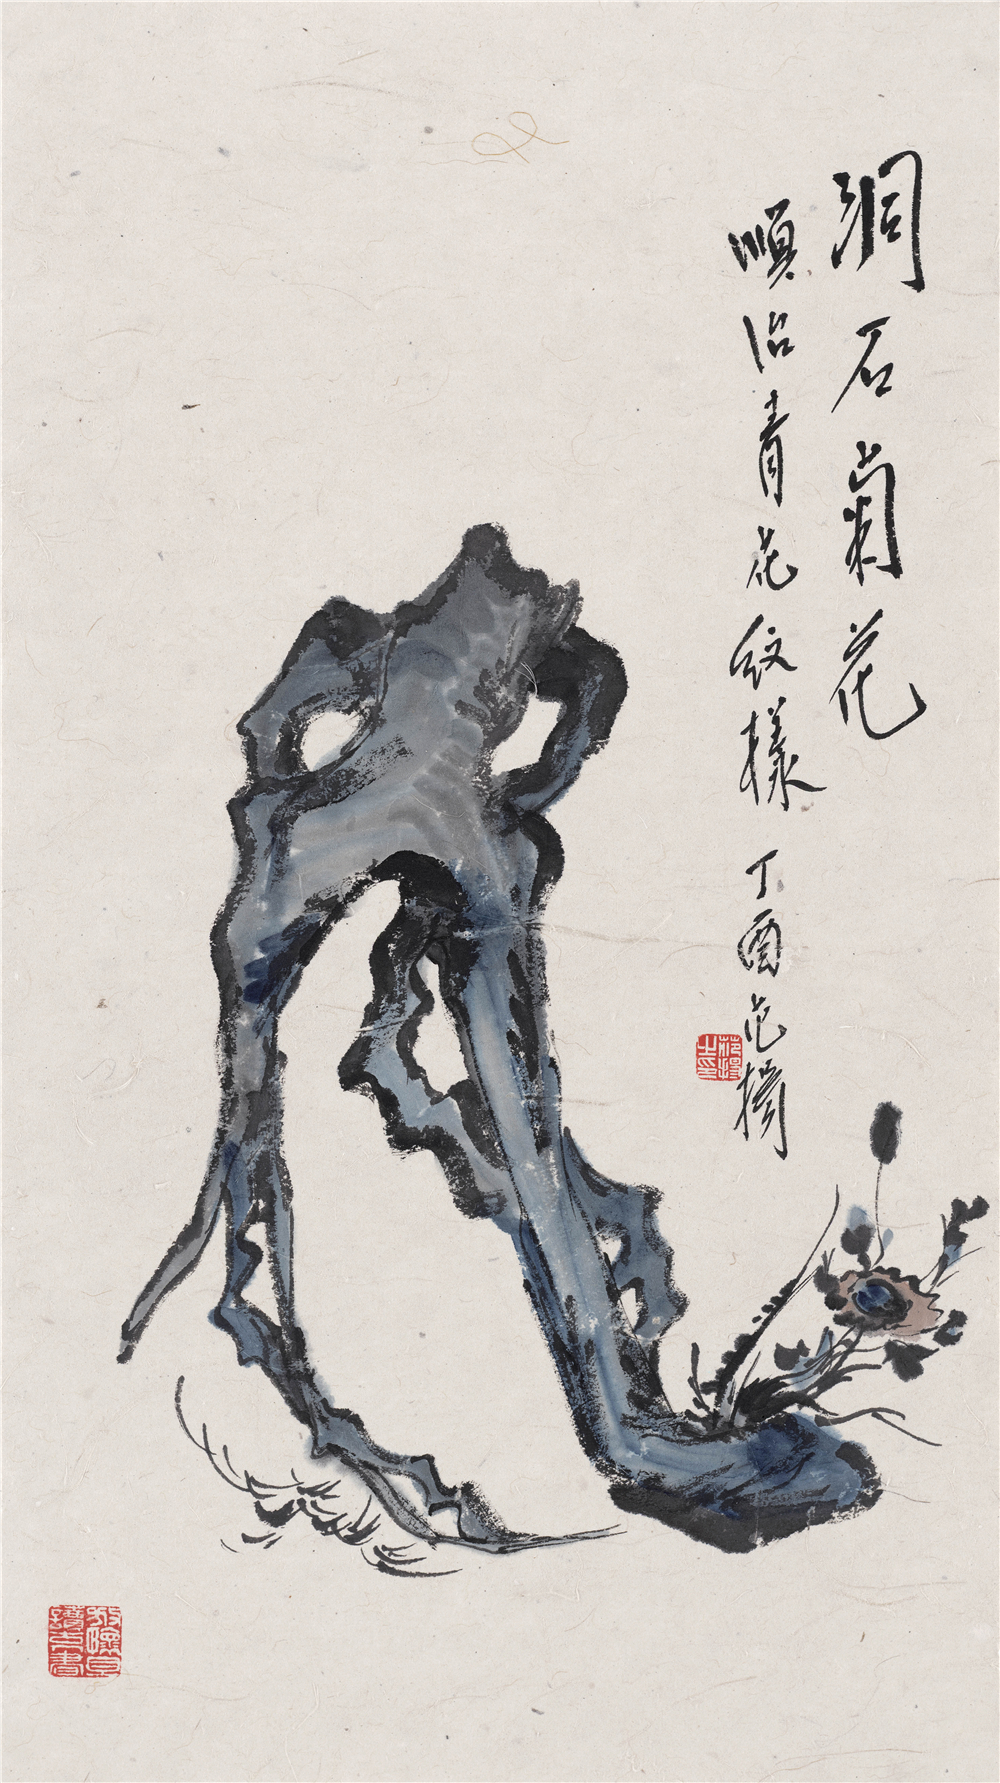 洞石菊花
順治青花紋樣 丁酉范撝